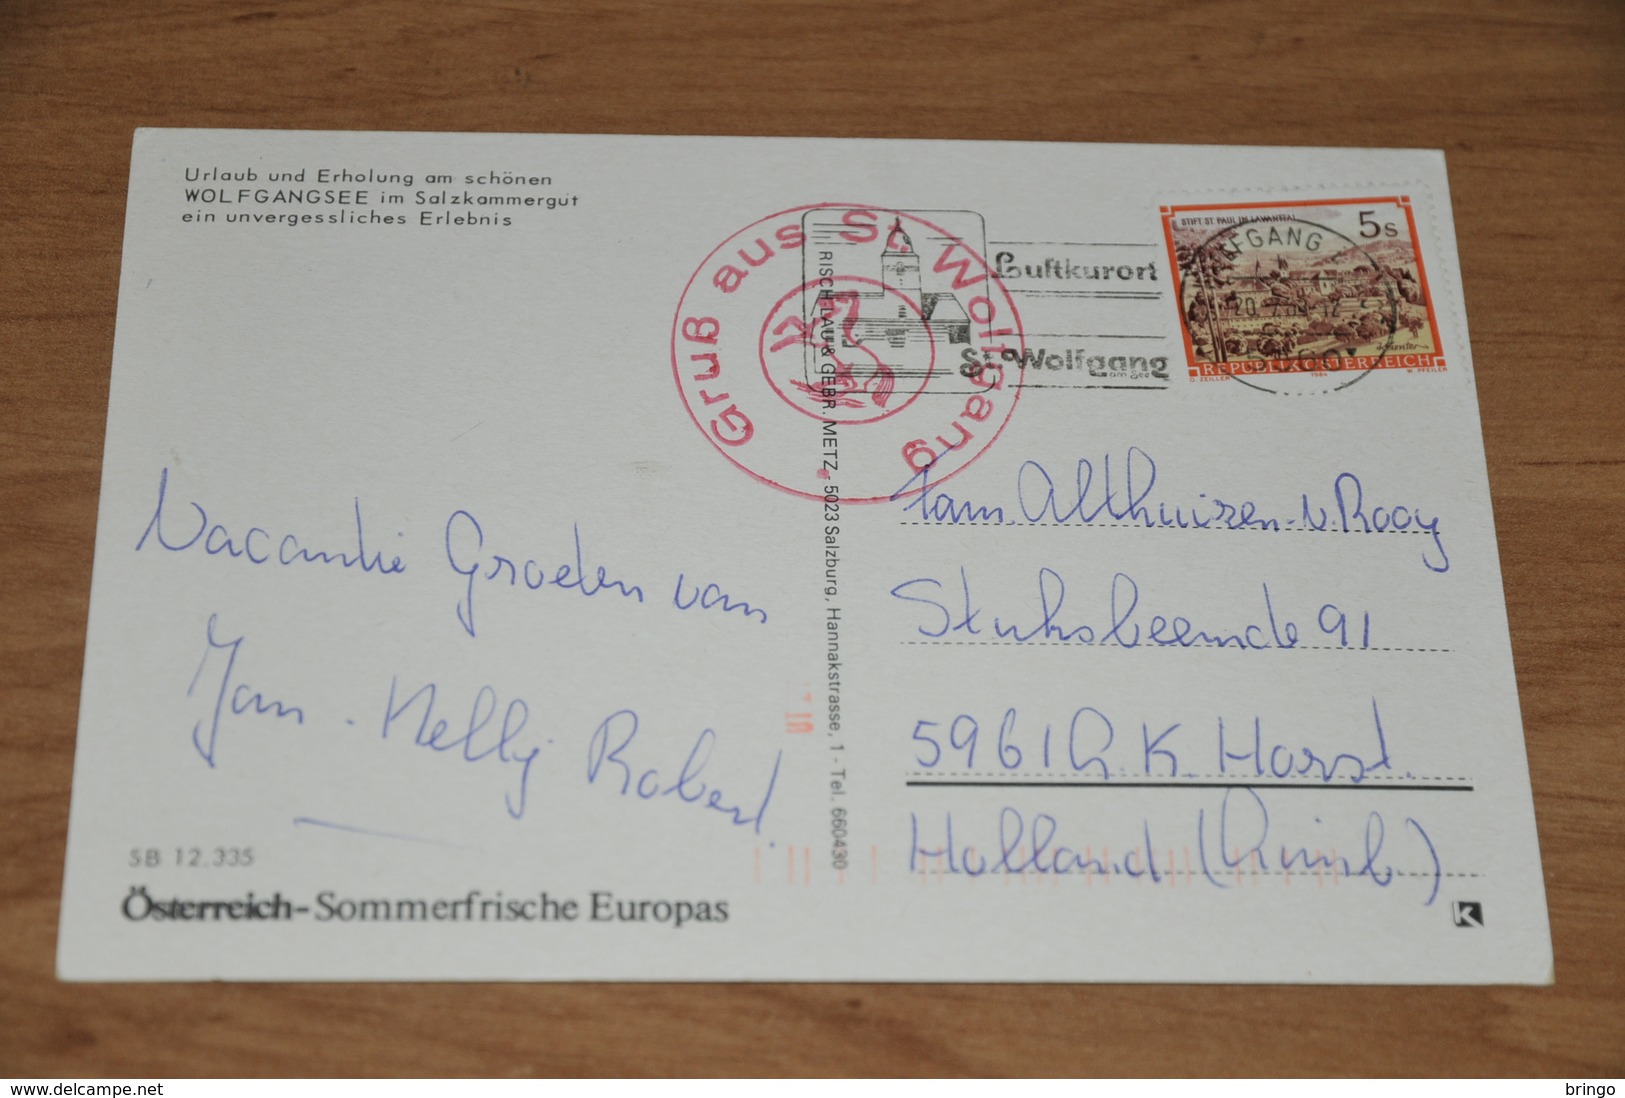 Urlaub und Erholung am schönen
WOLFGANGSEE im Salzkammergut
ein unvergessliches Erlebnis
Gruß aus St. Wolfgang
Luftkurort
St. Wolfgang
am See
STIFT ST. PAUL IM LAVANTTAL
5s
REPUBLIK ÖSTERREICH
O. ZEILLER 1984 W. PFEILER
RISCH-LAU & GEBR. METZ, 5023 Salzburg, Hannakstrasse, 1 - Tel. 660430
Vacantie Groeten van
Jan. Nelly Robert.
Fam. Althuizen-v. Rooy
Stuksbeemde 91
5961 G.K. Horst.
Holland (Limb.)
SB 12.335
Österreich-Sommerfrische Europas
K
www.delcampe.net
bringo